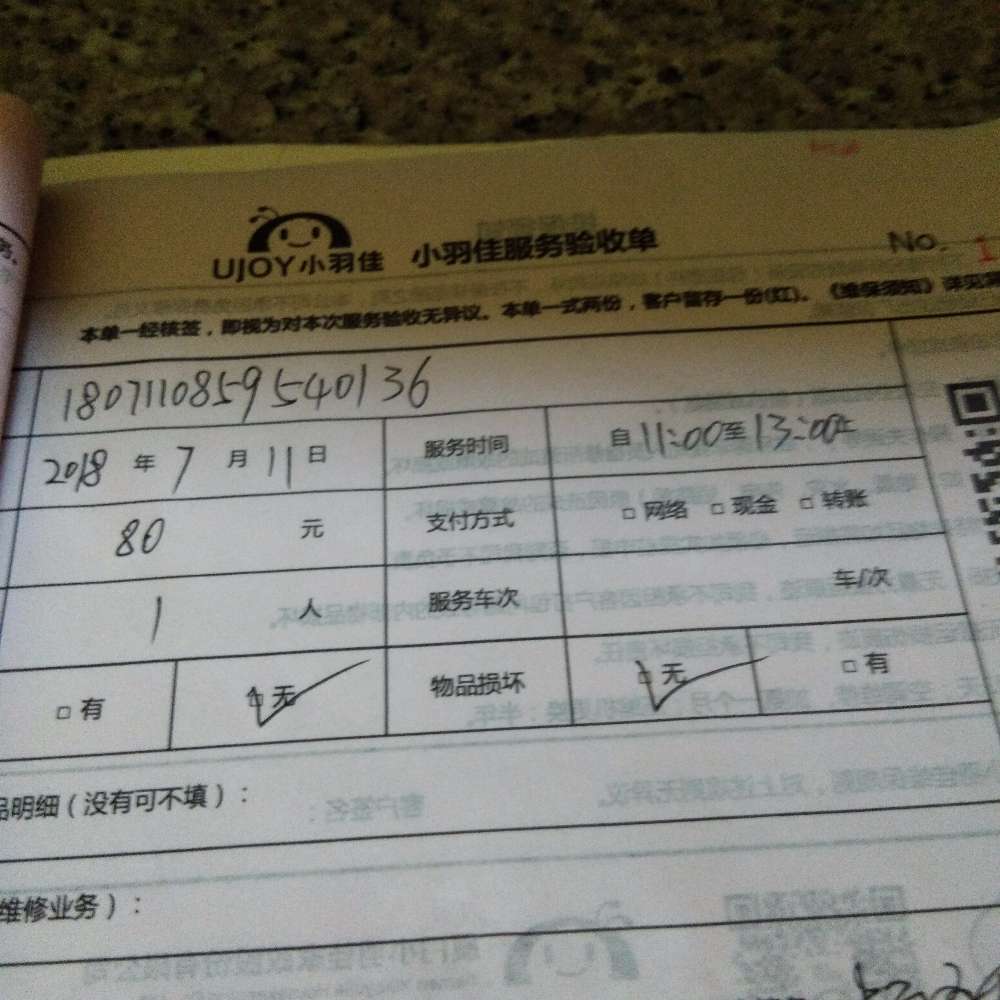 UJOY小羽佳 小羽佳服务验收单 No. 1
本单一经核签，即视为对本次服务验收无异议。本单一式两份，客户留存一份(红)。《维保须知》详见
180711085954013 6
2018 年 7 月 11 日 服务时间 自 11:00 至 13:00止
80 元 支付方式 □ 网络 □ 现金 □ 转账
1 人 服务车次 车/次
□ 有 □ 无 物品损坏 □ 无 □ 有
品明细（没有可不填）：
维修业务）：